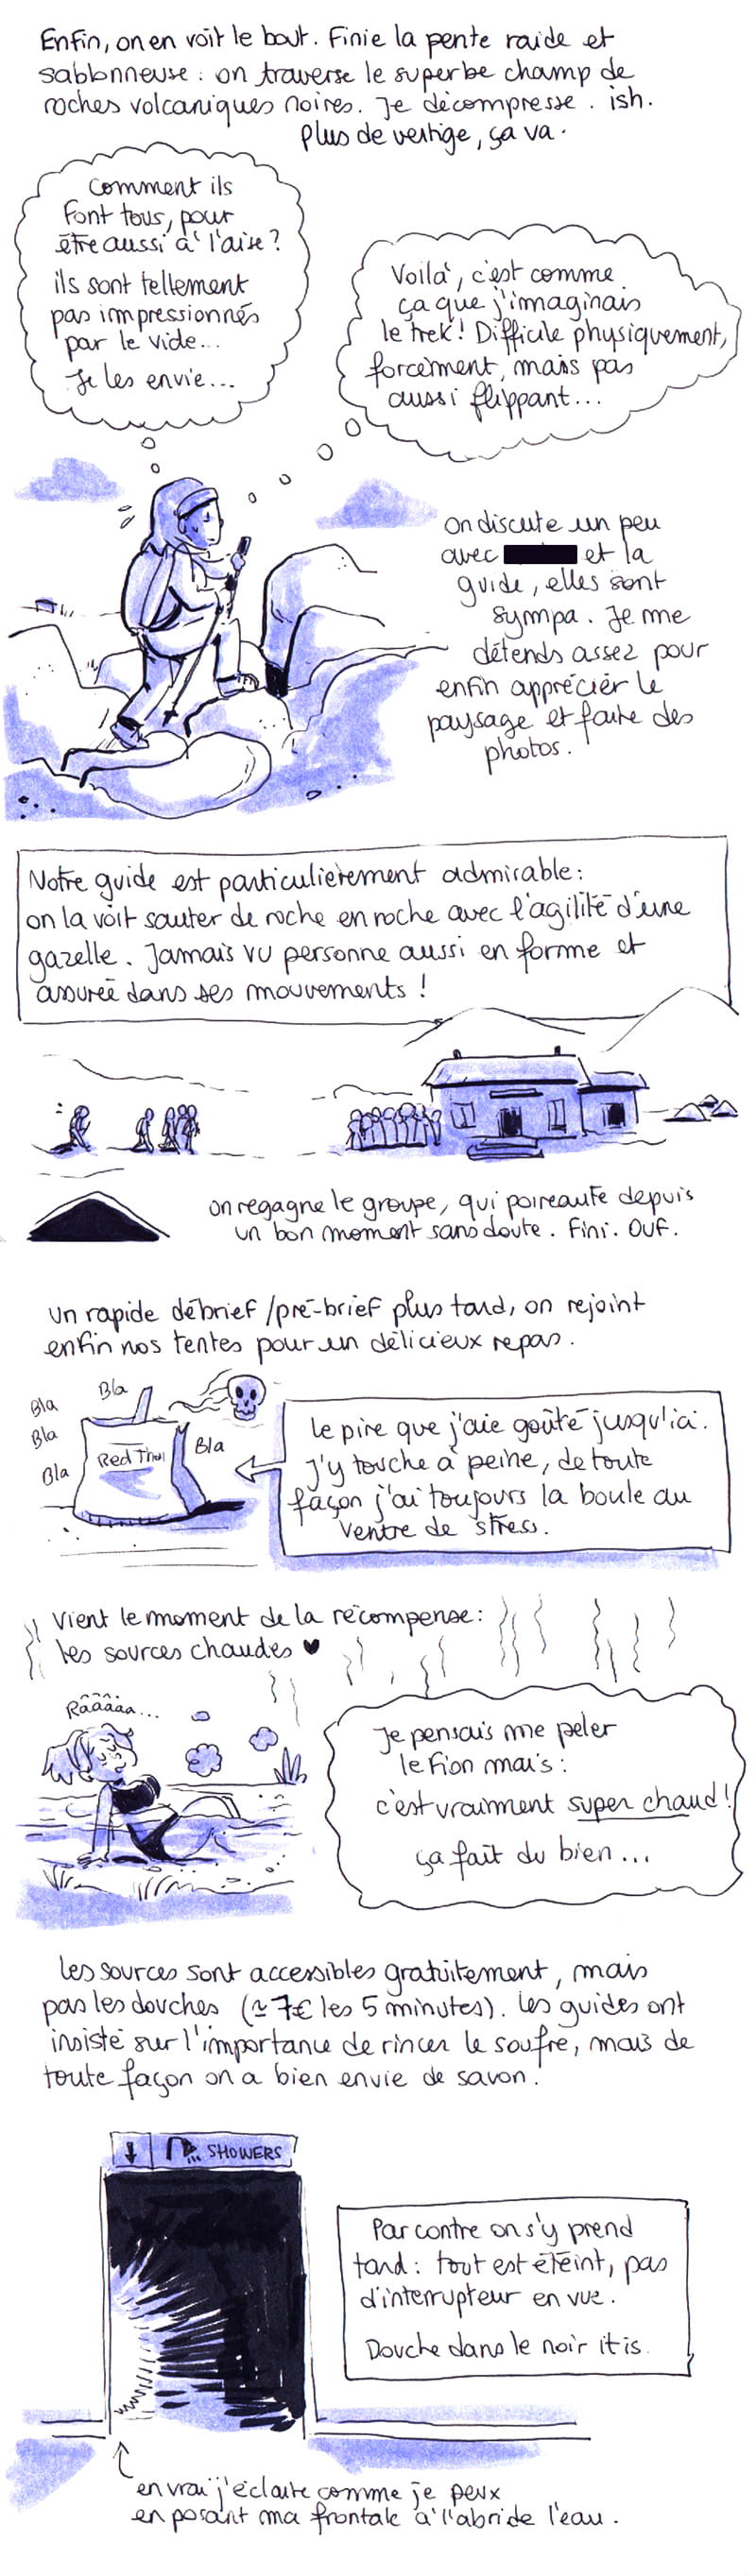 Enfin, on en voit le bout. Finie la pente raide et
sablonneuse : on traverse le superbe champ de
roches volcaniques noires. Je décompresse. ish.
Plus de vertige, ça va.
Comment ils
font tous, pour
être aussi à l'aise ?
ils sont tellement
pas impressionnés
par le vide...
Je les envie...
Voilà, c'est comme
ça que j'imaginais
le trek ! Difficile physiquement,
forcément, mais pas
aussi flippant...
On discute un peu
avec et la
guide, elles sont
sympa. Je me
détends assez pour
enfin apprécier le
paysage et faire des
photos.
Notre guide est particulièrement admirable :
on la voit sauter de roche en roche avec l'agilité d'une
gazelle. Jamais vu personne aussi en forme et
assurée dans ses mouvements !
On regagne le groupe, qui poireaute depuis
un bon moment sans doute. Fini. Ouf.
Un rapide débrief / pré-brief plus tard, on rejoint
enfin nos tentes pour un délicieux repas.
Bla
Bla
Bla
Bla
Bla
Red Thai
Le pire que j'aie goûté jusqu'ici.
J'y touche à peine, de toute
façon j'ai toujours la boule au
ventre de stress.
Vient le moment de la récompense :
les sources chaudes ♥
Râââââ...
Je pensais me peler
le fion mais :
c'est vraiment super chaud !
ça fait du bien...
Les sources sont accessibles gratuitement, mais
pas les douches (≃ 7€ les 5 minutes). Les guides ont
insisté sur l'importance de rincer le soufre, mais de
toute façon on a bien envie de savon.
SHOWERS
Par contre on s'y prend
tard : tout est éteint, pas
d'interrupteur en vue.
Douche dans le noir it is.
en vrai j'éclaire comme je peux
en posant ma frontale à l'abri de l'eau.